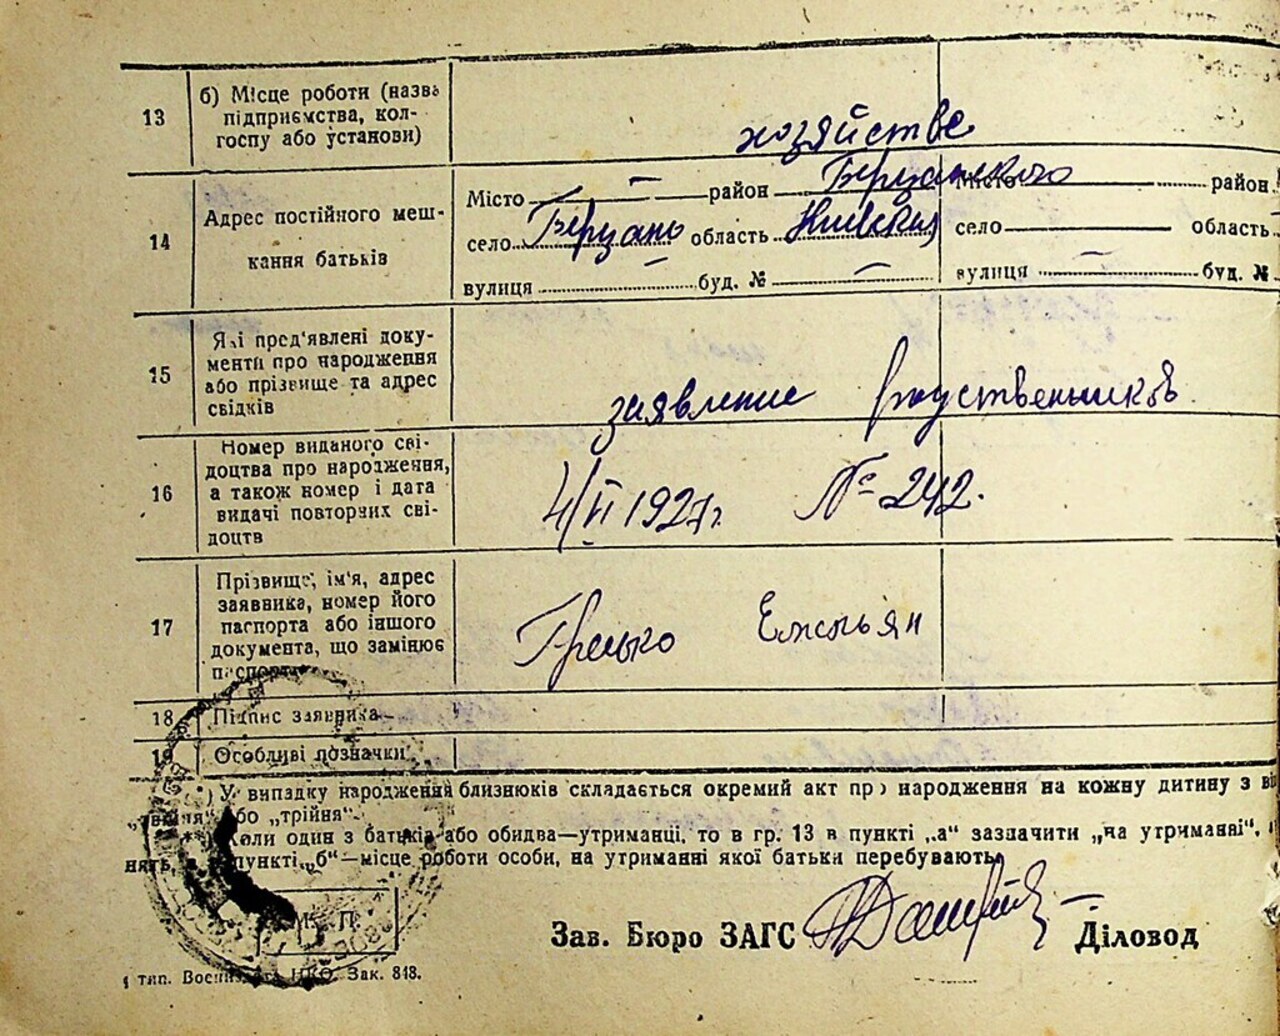 13
б) Місце роботи (назва
підприємства, кол-
госпу або установи)
хозяйстве
14
Адрес постійного меш-
кання батьків
Місто — район Березанського
село Березань область Киевская
вулиця — буд. № —
Місто район
село область
вулиця — буд. №
15
Які пред'явлені доку-
менти про народження
або прізвище та адрес
свідків
заявление родственников
16
Номер виданого сві-
доцтва про народження,
а також номер і дата
видачі повторних сві-
доцтв
4/VI 1927г. № 242.
17
Прізвище, ім'я, адрес
заявника, номер його
паспорта або іншого
документа, що замінює
паспорта
Гренько Емельян
18
Підпис заявника
19
Особливі позначки
*) У випадку народження близнюків складається окремий акт про народження на кожну дитину з
„двійня" або „трійня".
**) Коли один з батьків або обидва—утриманці, то в гр. 13 в пункті „а" зазначити „на утриманні",
пункті „б"—місце роботи особи, на утриманні якої батьки перебувають.
М. П.
Зав. Бюро ЗАГС
Діловод
тип. Воениздата НКО. Зак. 818.